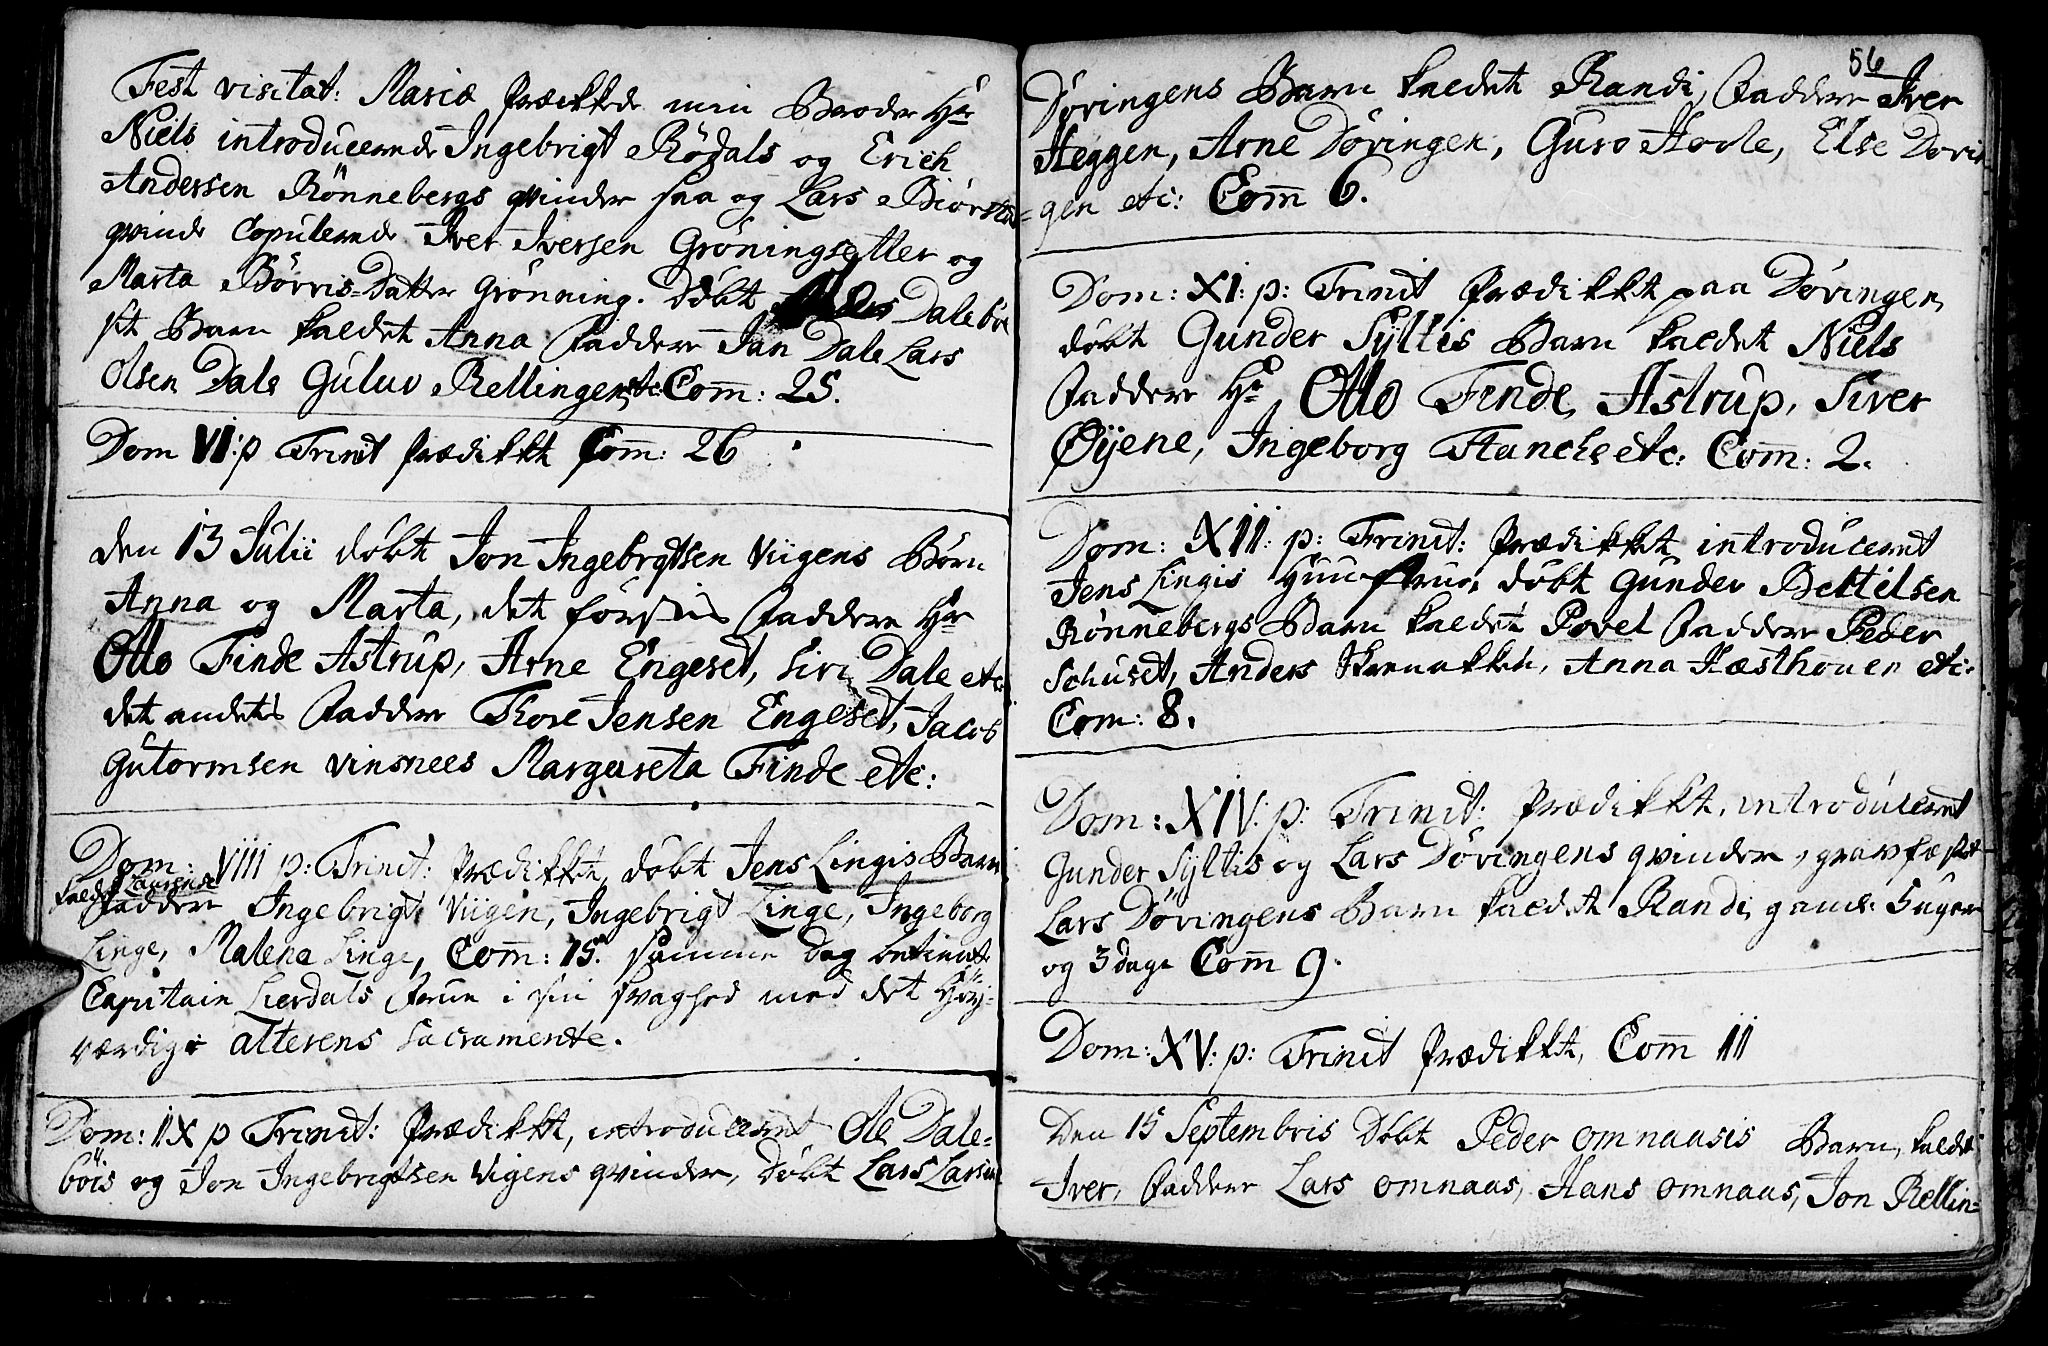 Fest visitat: Mariæ Prædikede min Broder Hr
Niels introducerede Ingebrigt Rödals og Erich
Andersen Rönnebergs qvinder saa og Lars Biörstad
qvinde Copulerede Iver Iversen Gröningsetter og
Marta Börris-Datter Grönning. Döbt Dalebö
sit Barn kaldet Anna Faddere Jan Dale Lars
Olsen Dale Guluv Rellingen etc: Com̅: 25.
Dom VI: p Trinit Prædikket Com̅: 26
den 13 Julii döbt Jon Ingebrgtsen Viigens Börn
Anna og Marta, det förstes Faddere Hr
Otto Finde Astrup, Arne Engeset, Siri Dale etc:
det andetes Faddere Thore Jensen Engeset, Jacob
Gutormsen vinsnees Margareta Finde etc:
Dom: VIII p: Trinit: Prædikket, döbt Jens Lingis Barn
kaldet Laurense
Faddere Ingebrigt Viigen, Ingebrigt Linge, Ingeborg
Linge, Malena Linge, Com̅: 15. samme Dag betient
Capitain Lierdals Frue i sin svaghed med det Höy-
værdige alterens sacramente.
Dom: IX p Trinit: Prædikket, introduceret Ole Dale-
böis og Jon Ingebrigtsen Vigens qvinder, Döbt Lars Larsen
56
Döringens Barn kaldet Randi, Faddere Iver
Heggen, Arne Döringen, Guro Hovle, Else Dörin
gen etc: Com̅ 6.
Dom: XI: p: Trinit Prædikket paa Döringen,
döbt Gunder Syltis Barn kaldet Niels
Faddere Hr Otto Finde, Astrup, Siver
Øyene, Ingeborg Stanche etc: Com̅: 2.
Dom: XII: p: Trinit: Prædikket, introduceret
Jens Lingis Huustrue, döbt Gunder Bettelsen
Rönnebergs Barn kaldet Povel Faddere Peder
Schuset, Anders, Anna Hæsthouen etc:
Com: 8.
Dom: XIV: p: Trinit: Prædikket, introduceret
Gunder Syltis og Lars Döringens qvinder, gravfæstet
Lars Döringens Barn kaldet Randi, gaml: 5 uger
og 3 dage Com̅ 9.
Dom: XV: p: Trinit Prædikket, Com̅ 11
Den 15 Septembris Döbt Peder omnaasis Barn, kaldet
Iver, Faddere Lars omnaas, Hans omnaas, Jon Rellin-